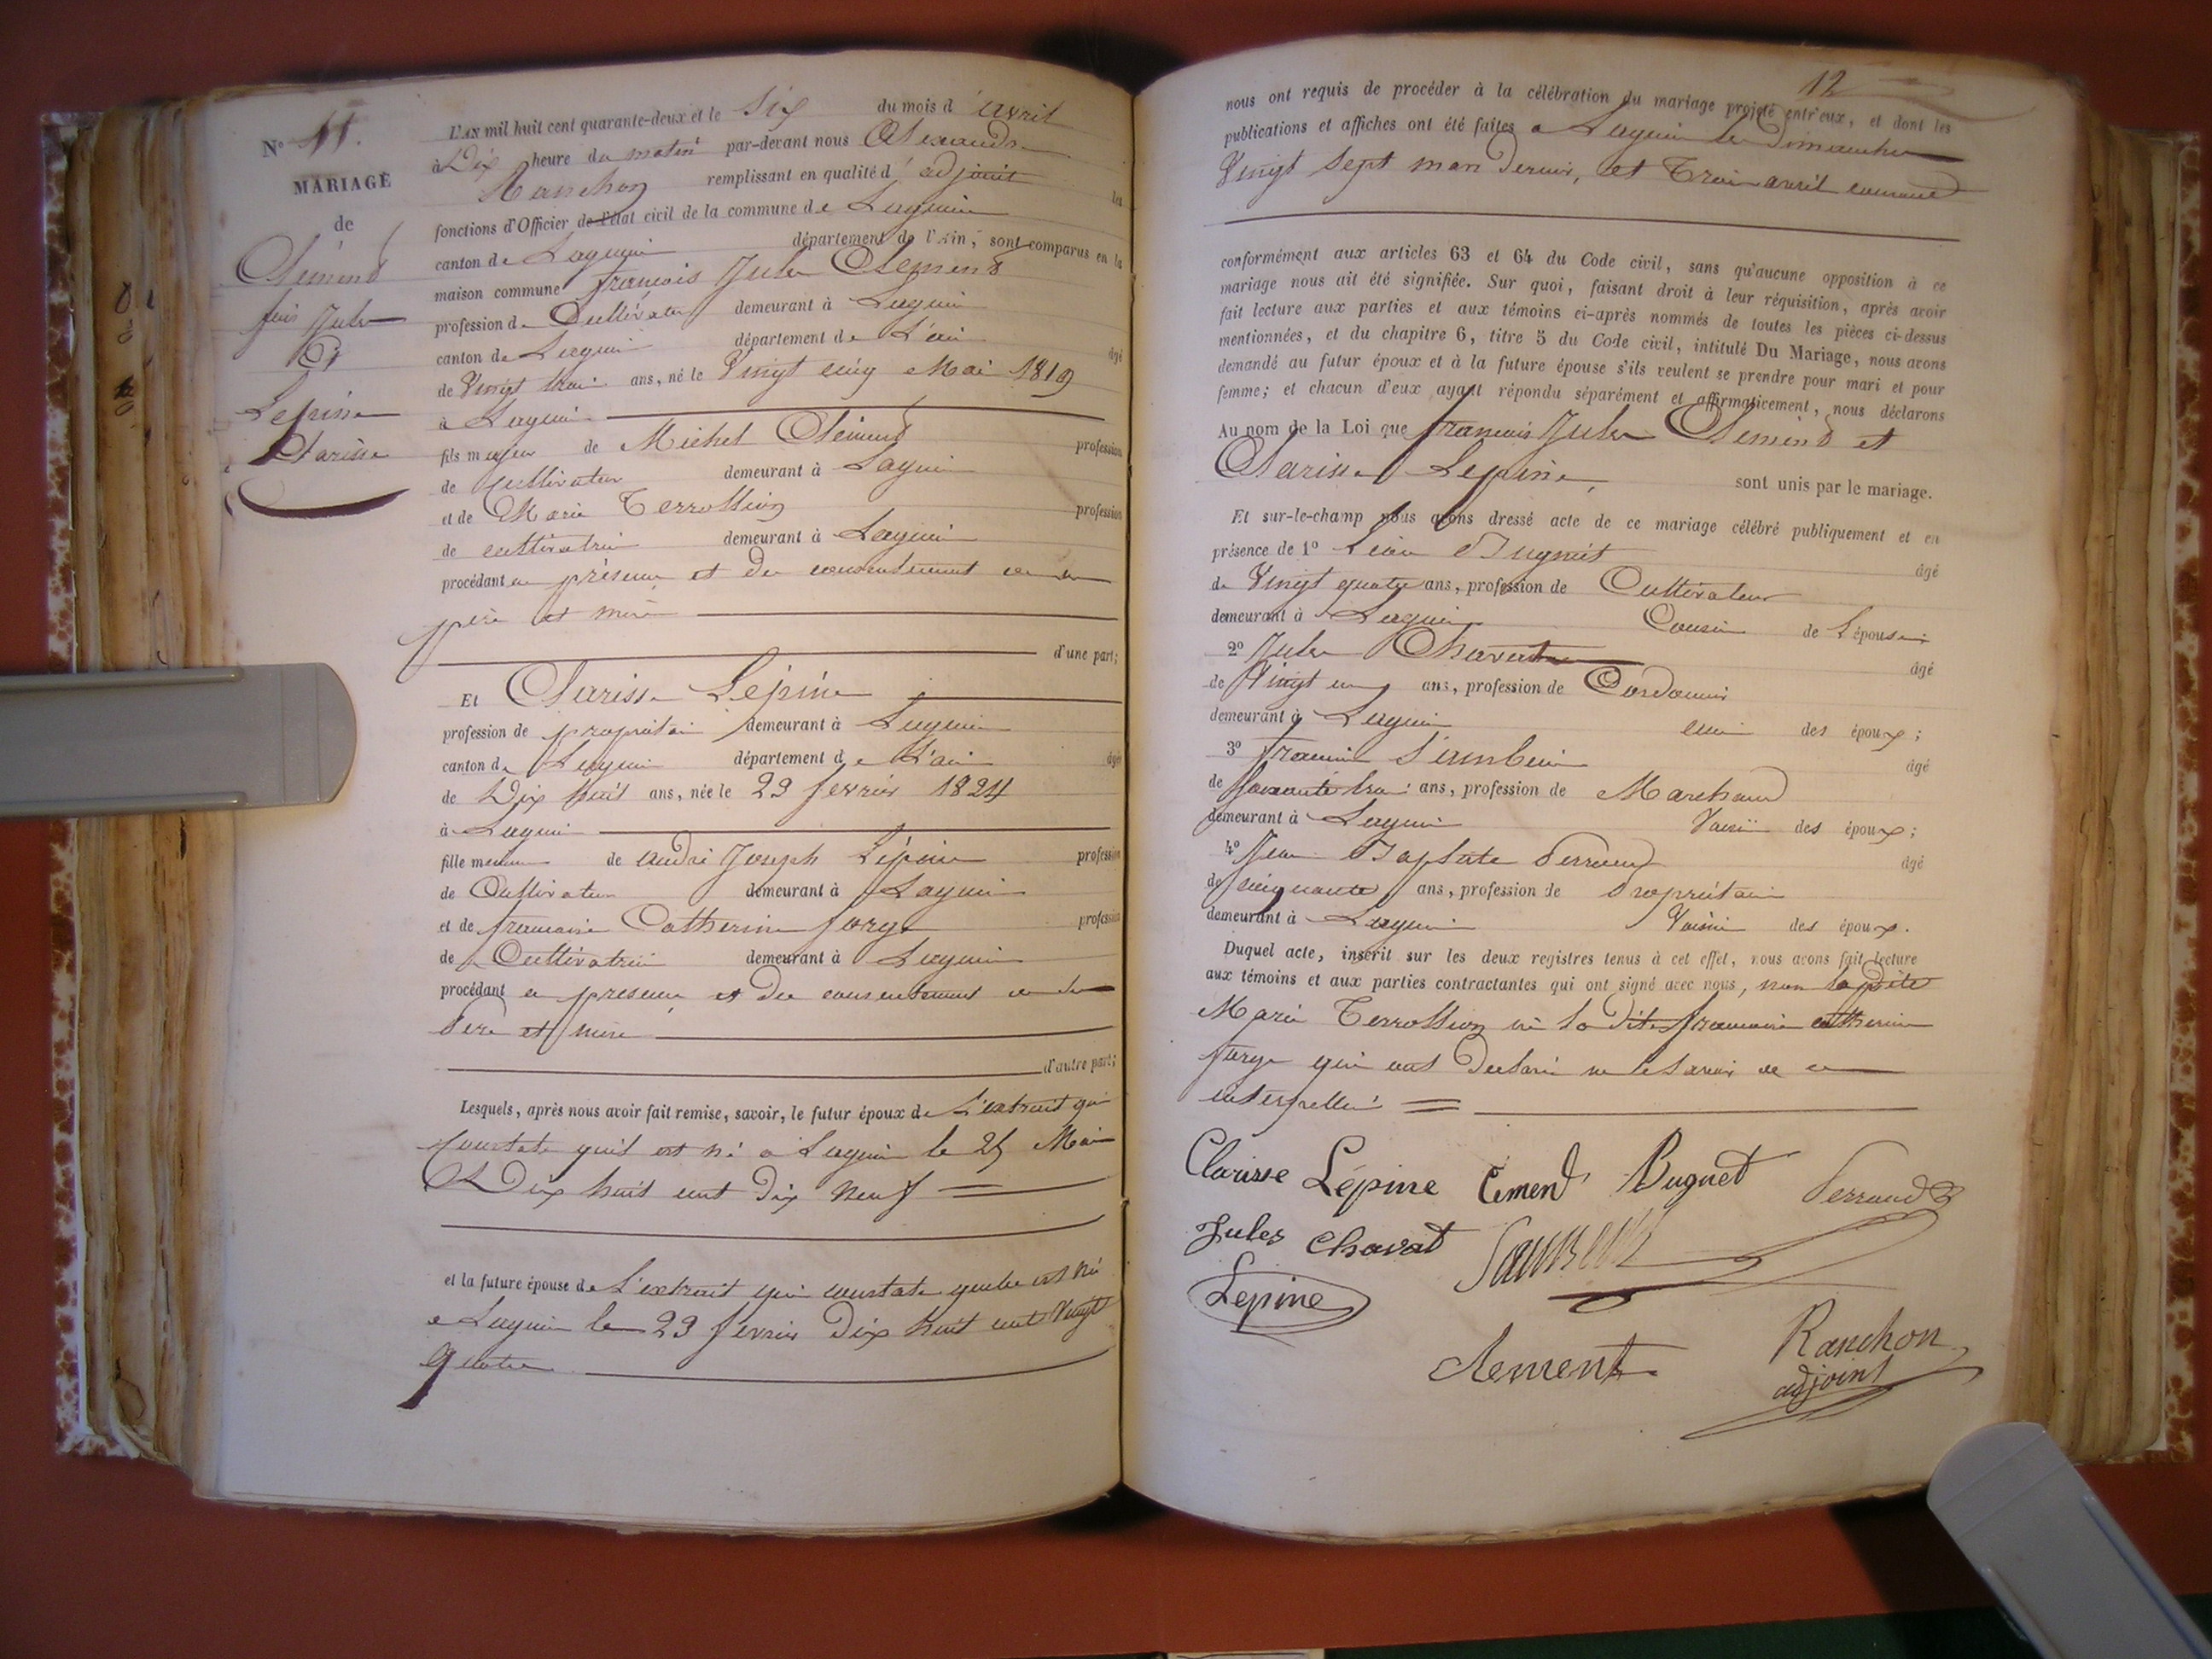 N° 11.
MARIAGE
de
Clément
fois Jules
Et
Lepine
Clarisse
L'AN mil huit cent quarante-deux et le Six du mois d'avril
à Dix heure du matin par-devant nous Alexandre
Ranchon remplissant en qualité d'adjoint les
fonctions d'Officier de l'état civil de la commune de Lagnieu
canton de Lagnieu département de l'Ain, sont comparus en la
maison commune françois Jules Clément
profession de Cultivateur demeurant à Lagnieu
canton de Lagnieu département de L'ain âgé
de Vingt trois ans, né le Vingt cinq Mai 1819
à Lagnieu
fils majeur de Michel Clément profession
de Cultivateur demeurant à Lagnieu
et de Marie Terrollion profession
de cultivatrice demeurant à Lagnieu
procédant en présence et du consentement de ses
père et mère
d'une part;
Et Clarisse Lépine
profession de propriétaire demeurant à Lagnieu
canton de Lagnieu département de L'ain âgée
de Dix huit ans, née le 23 fevrier 1824
à Lagnieu
fille mineure de andré Joseph Lépine profession
de Cultivateur demeurant à Lagnieu
et de francoise Catherine forge profession
de Cultivatrice demeurant à Lagnieu
procédant en presence et du consentement de ses
Père et mère
d'autre part;
Lesquels, après nous avoir fait remise, savoir, le futur époux de L'extrait qui
Constate qu'il est né à Lagnieu le 25 Mai
Dix huit cent dix neuf =
et la future épouse de L'extrait qui constate quelle est né
a Lagnieu le 23 fevrier Dix huit cent Vingt
quatre
12
nous ont requis de procéder à la célébration du mariage projeté entr'eux, et dont les
publications et affiches ont été faites a Lagnieu les Dimanches
Vingt Sept mars dernier, et Trois avril courant
conformément aux articles 63 et 64 du Code civil, sans qu'aucune opposition à ce
mariage nous ait été signifiée. Sur quoi, faisant droit à leur réquisition, après avoir
fait lecture aux parties et aux témoins ci-après nommés de toutes les pièces ci-dessus
mentionnées, et du chapitre 6, titre 5 du Code civil, intitulé Du Mariage, nous avons
demandé au futur époux et à la future épouse s'ils veulent se prendre pour mari et pour
femme; et chacun d'eux ayant répondu séparément et affirmativement, nous déclarons
Au nom de la Loi que françois Jules Clément et
Clarisse Lepine, sont unis par le mariage.
Et sur-le-champ nous avons dressé acte de ce mariage célébré publiquement et en
présence de 1° Léon Bugniet âgé
de Vingt quatre ans, profession de Cultivateur
demeurant à Lagnieu Cousin de L'épouse;
2° Jules Chavat âgé
de Vingt un ans, profession de Cordonnier
demeurant à Lagnieu ami des époux;
3° francois âgé
de soixante trois ans, profession de Marchand
demeurant à Lagnieu Voisin des époux;
4° Jean Baptiste Perraud âgé
de cinquante ans, profession de Propriétaire
demeurant à Lagnieu Voisin des époux.
Duquel acte, inscrit sur les deux registres tenus à cet effet, nous avons fait lecture
aux témoins et aux parties contractantes qui ont signé avec nous, non la dite
Marie Terrollion ni la dite francoise catherine
forge qui ont Declaré ne le savoir de ce
interpellé =
Clarisse Lépine Cement Buguet Perraud
Jules Chavat
Lepine
clement Ranchon
adjoint